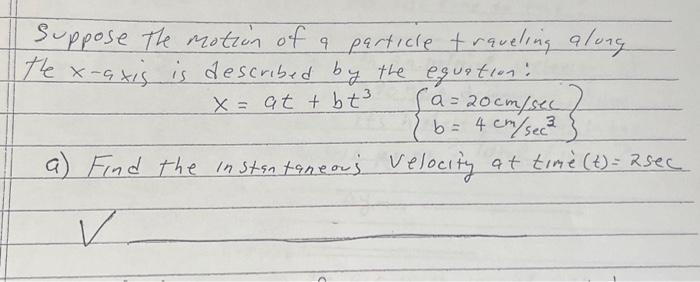 Suppose The motion of a particle traveling along
the x-axis is described by the equation:
x = at + bt³ { a = 20cm/sec }
{ b = 4 cm/sec³ }
a) Find the instantaneous velocity at time (t) = 2sec
V